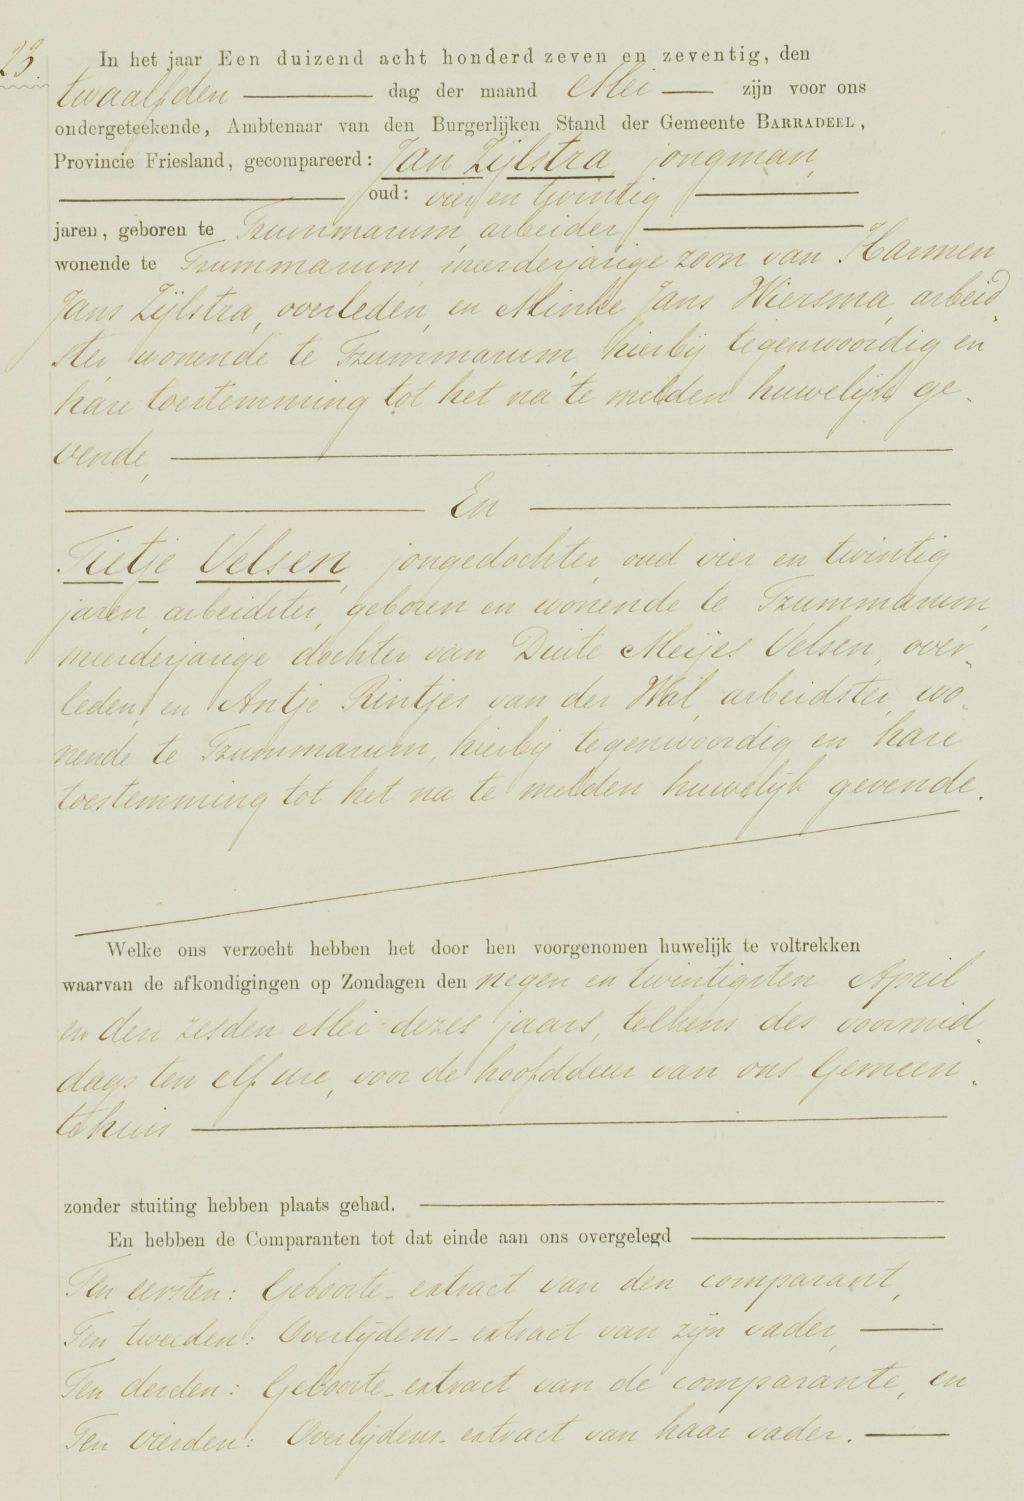 23.
In het jaar Een duizend acht honderd zeven en zeventig, den
twaalfden dag der maand Mei zijn voor ons
ondergeteekende, Ambtenaar van den Burgerlijken Stand der Gemeente BARRADEEL,
Provincie Friesland, gecompareerd: Jan Zijlstra, jongman,
oud: vier en twintig
jaren, geboren te Tzummarum, arbeider,
wonende te Tzummarum, meerderjarige zoon van Harmen
Jans Zijlstra, overleden, en Minke Jans Wiersma, arbeid-
ster, wonende te Tzummarum, hierbij tegenwoordig en
hare toestemming tot het na te melden huwelijk ge-
vende,
En
Tietje Velsen, jongedochter, oud vier en twintig
jaren, arbeidster, geboren en wonende te Tzummarum,
meerderjarige dochter van Duite Meijes Velsen, over-
leden, en Antje Rintjes van der Wal, arbeidster, wo-
nende te Tzummarum, hierbij tegenwoordig en hare
toestemming tot het na te melden huwelijk gevende.
Welke ons verzocht hebben het door hen voorgenomen huwelijk te voltrekken
waarvan de afkondigingen op Zondagen den negen en twintigsten April
en den zesden Mei dezes jaars, telkens des voormid-
dags ten elf ure, voor de hoofddeur van ons Gemeen-
tehuis
zonder stuiting hebben plaats gehad.
En hebben de Comparanten tot dat einde aan ons overgelegd
Ten eersten: Geboorte-extract van den comparant,
Ten tweeden: Overlijdens-extract van zijn vader,
Ten derden: Geboorte-extract van de comparante, en
Ten vierden: Overlijdens-extract van haar vader.